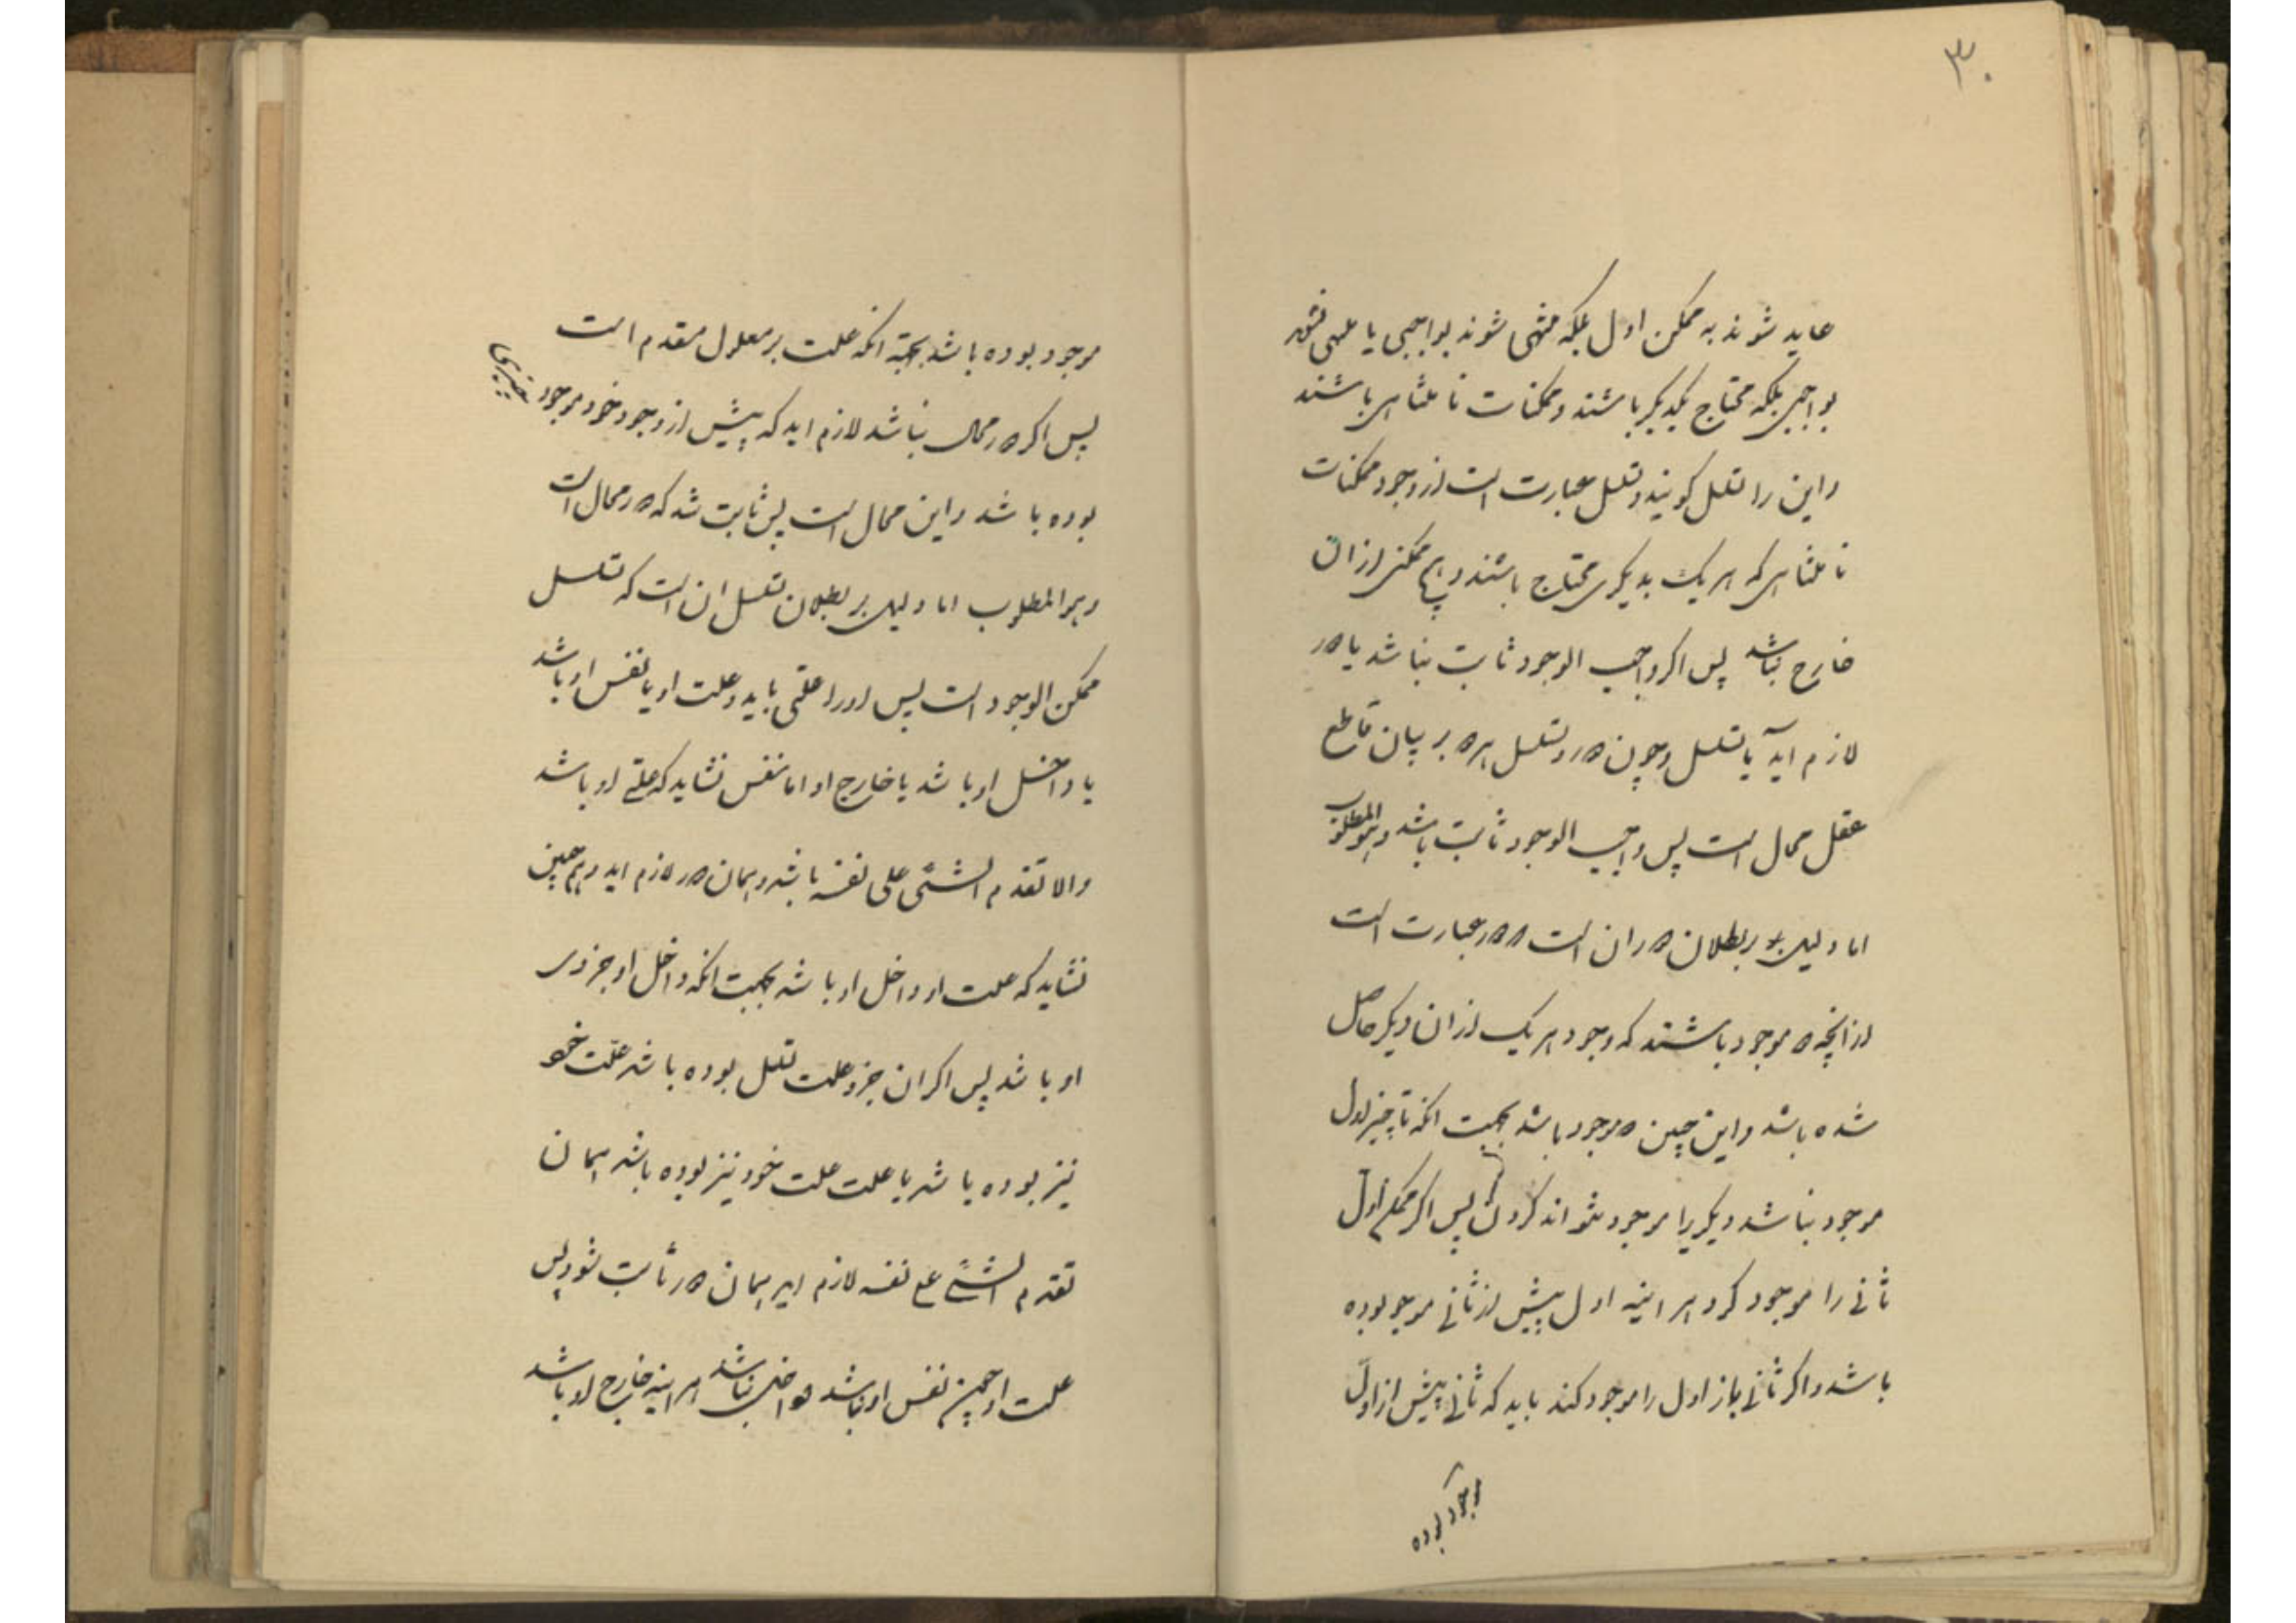 ۳۰
عاید شوند به ممکن اول بلکه منتهی شوند بواجبی یا منتهی نشوند
بواجبی بلکه محتاج یکدیکر باشند و ممکنات نامتناهی باشند
و این را تسلسل کویند و تسلسل عبارت است از وجود ممکنات
نامتناهی که هر یک بدیکری محتاج باشند و هیچ ممکنی از ان
خارج نباشد پس اکر واجب الوجود ثابت نباشد یا دور
لازم اید یا تسلسل و چون دور و تسلسل هر دو بر بیان قاطع
عقل محال است پس واجب الوجود ثابت باشد و هو المطلوب
اما دلیل بر بطلان دور ان است دور عبارت است
از انچه دو موجود باشند که وجود هر یک از ان دیکر حاصل
شده باشد و این چنین دو موجود باشد بجهت انکه تا چیز اول
موجود نباشد دیکر یرا موجود نتواند کردن پس اکر ممکن اول
ثانی را موجود کرد هر اینه اول پیش از ثانی موجود بوده
باشد و اکر ثانی باز اول را موجود کند باید که ثانی پیش از اول
موجود بوده
موجود بوده باشد بجهة انکه علت بر معلول مقدم است
پس اکر دور محال نباشد لازم اید که پیش از وجود خود موجود
بوده باشد و این محال است پس ثابت شد که دور محال است
و هو المطلوب اما دلیل بر بطلان تسلسل ان است که تسلسل
ممکن الوجود است پس او را علتی باید و علت او یا نفس او باشد
یا داخل او باشد یا خارج او اما نفس نشاید که علتی او باشد
والا تقدم الشئی علی نفسه باشد و همان دور لازم اید و هم چنین
نشاید که علت او داخل او باشد بجهت انکه داخل او جزوی
او باشد پس اکر ان جزو علت تسلسل بوده باشد علت خود
نیز بوده باشد یا علت علت خود نیز بوده باشد همان
تقدم الشئی علی نفسه لازم اید همان دور ثابت شود پس
علت او چون نفس او نباشد و داخل نباشد هر اینه خارج او باشد